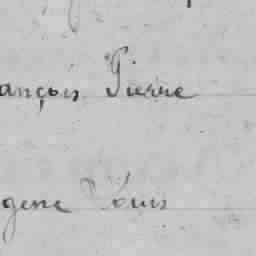 ançois Pierre
gene Louis